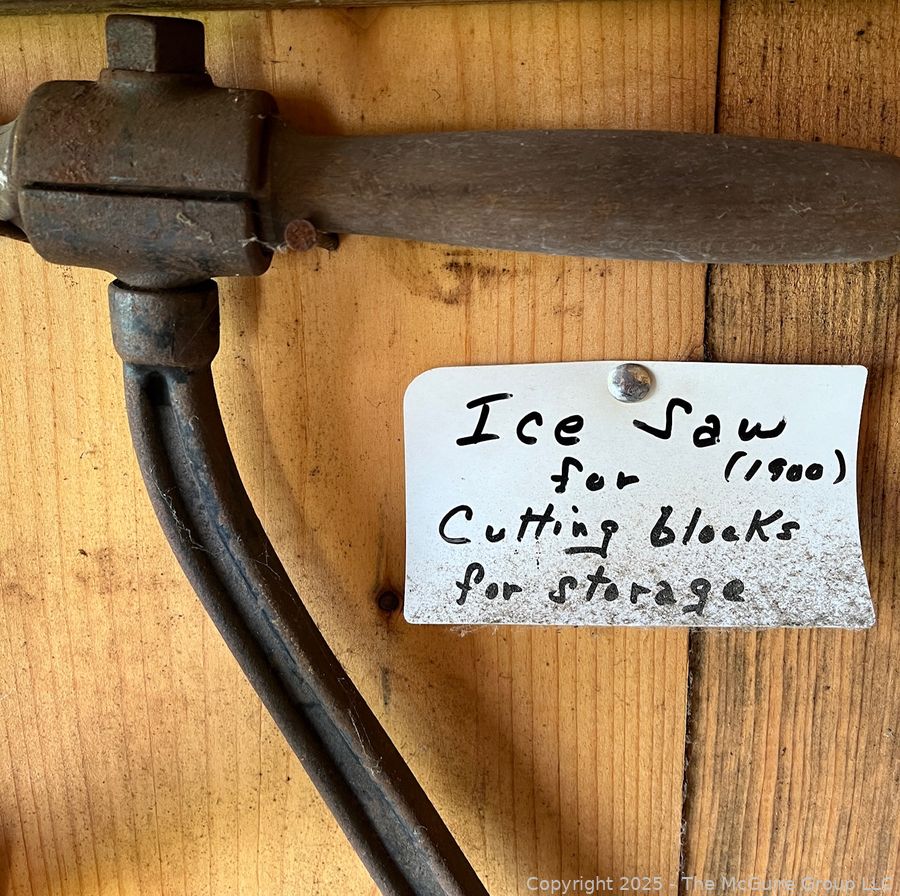 Ice Saw
(1900)
for
Cutting blocks
for storage
Copyright 2025 - The McGuire Group LLC